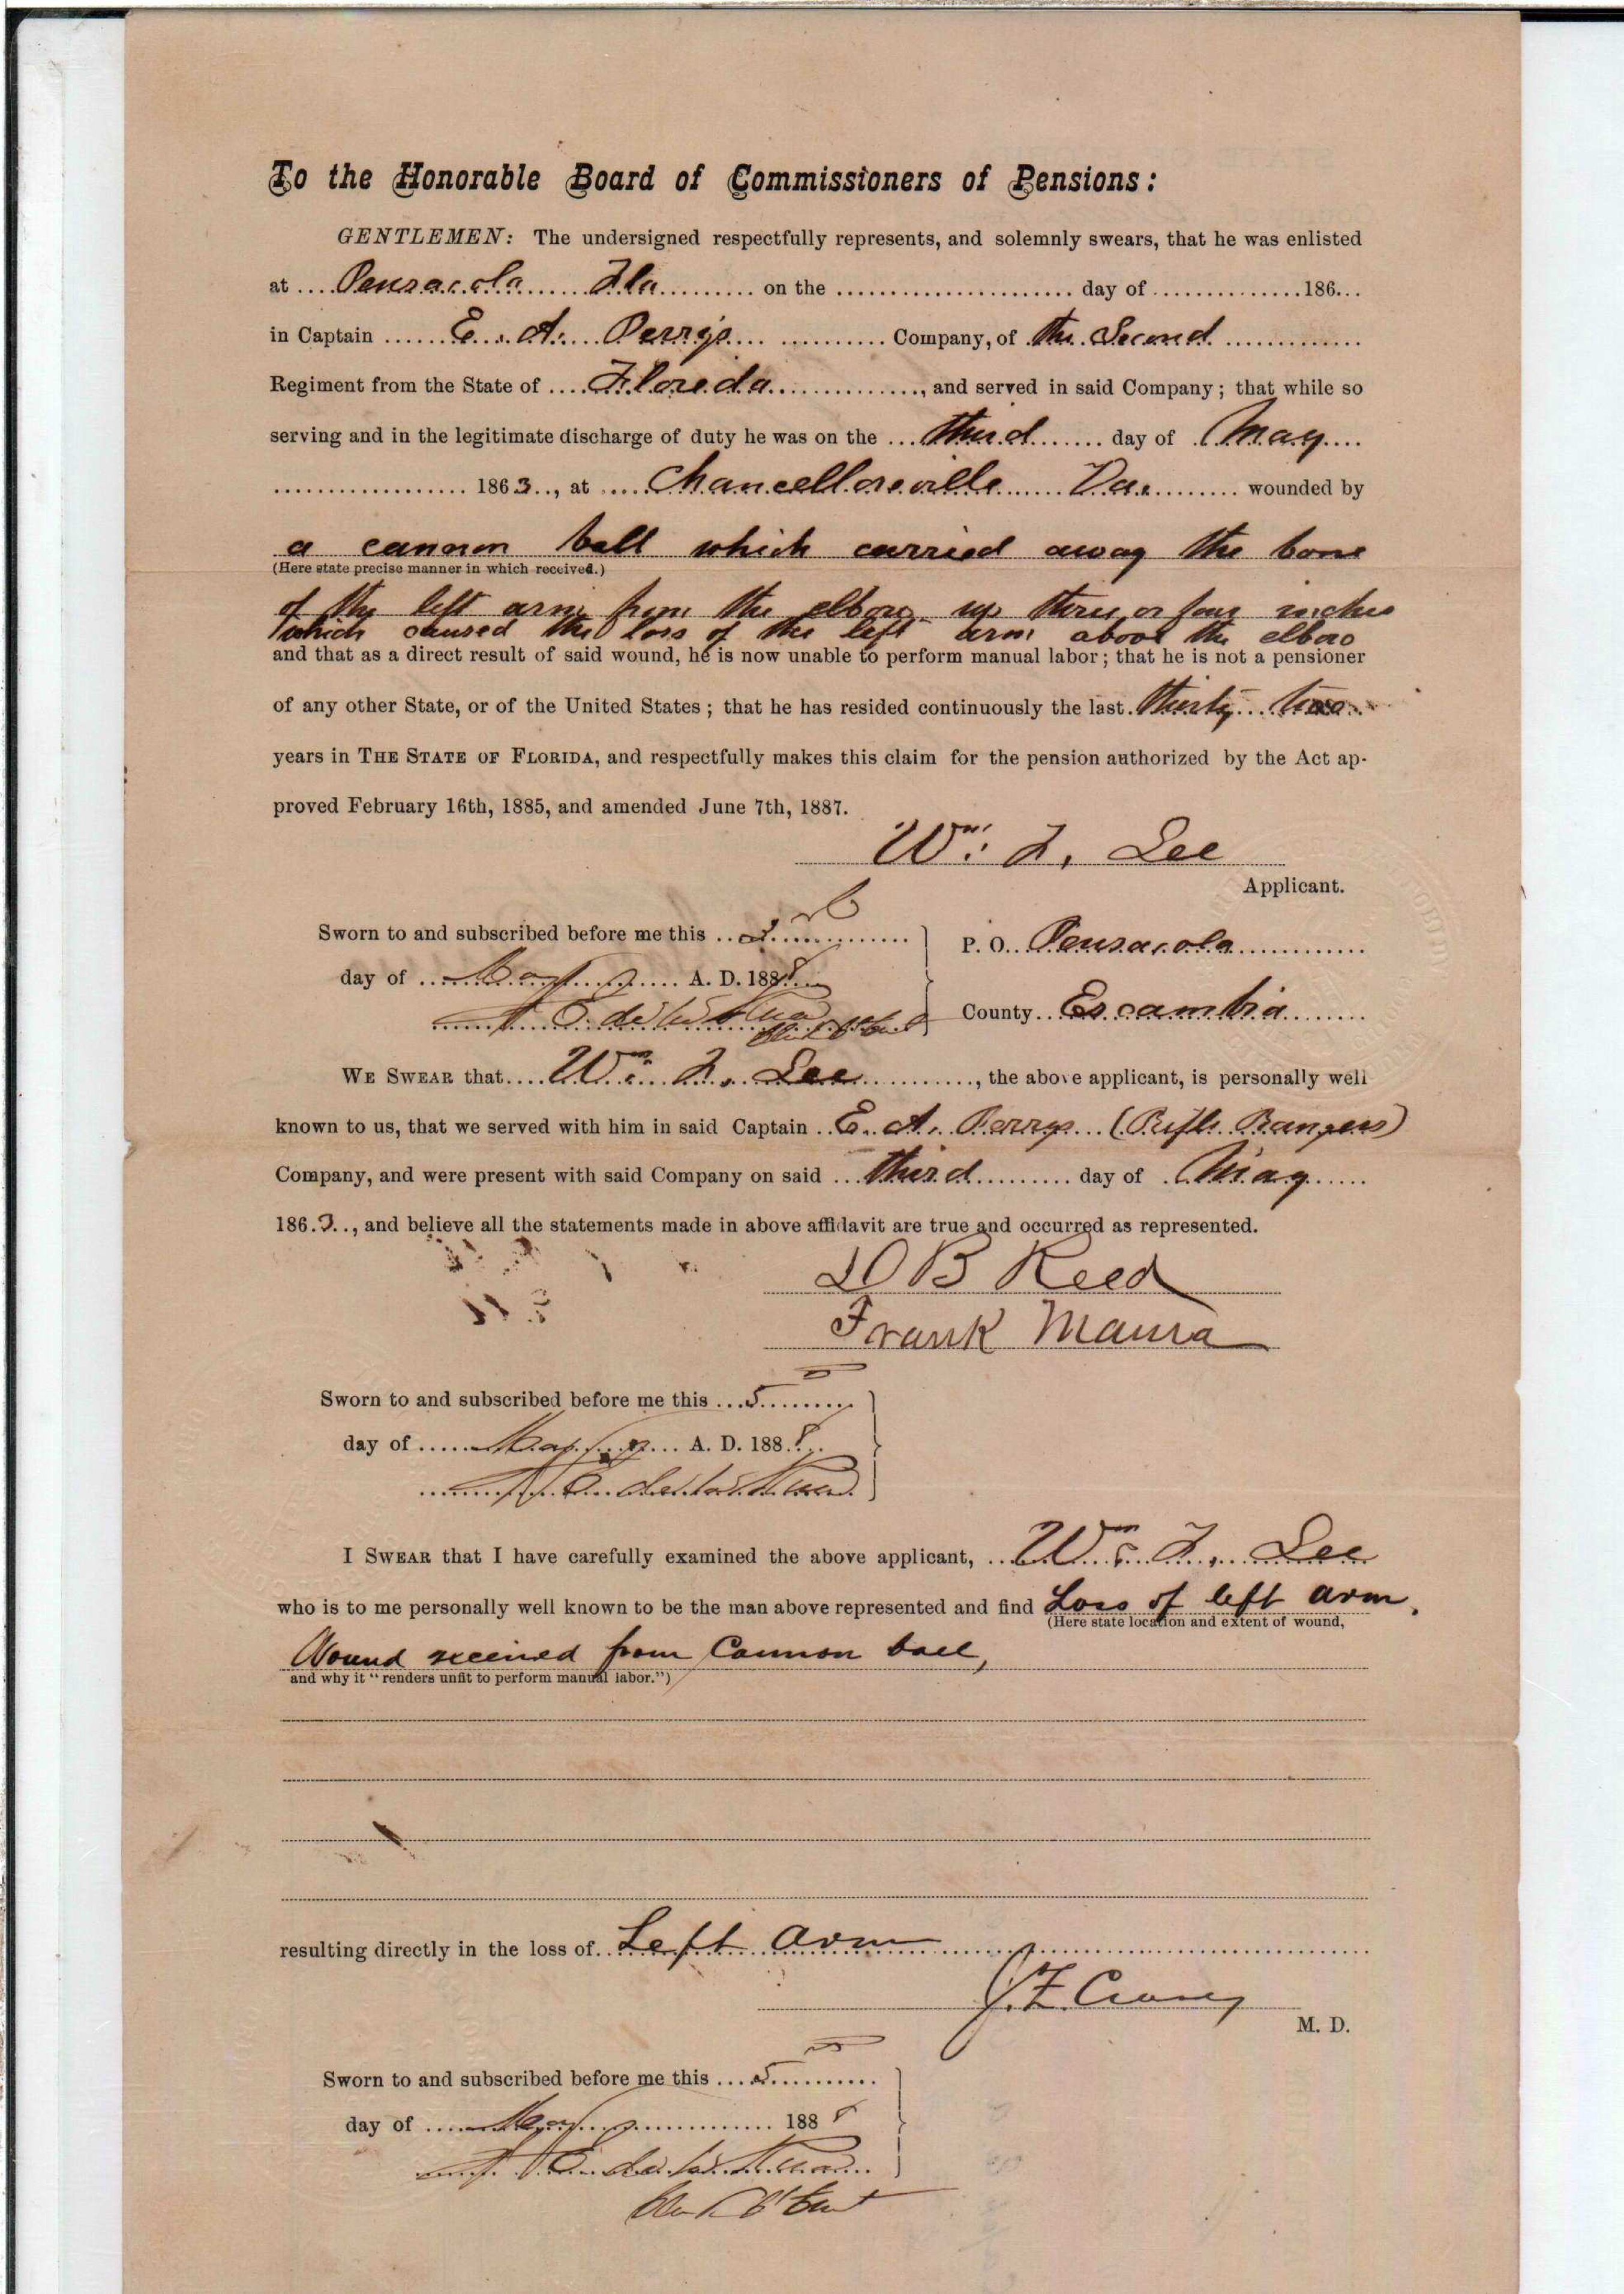 To the Honorable Board of Commissioners of Pensions:
GENTLEMEN: The undersigned respectfully represents, and solemnly swears, that he was enlisted
at .... Pensacola Fla .......... on the ........................ day of ...............186...
in Captain ...... E. A. Perrys .... .......... Company, of the Second .............
Regiment from the State of .... Florida ..............., and served in said Company; that while so
serving and in the legitimate discharge of duty he was on the ... third ....... day of May ....
................... 1863.., at ..... Chancellorsville Va. ......... wounded by
a cannon ball which carried away the bone
(Here state precise manner in which received.)
of the left arm from the elbow up three or four inches
which caused the loss of the left arm above the elbow
and that as a direct result of said wound, he is now unable to perform manual labor; that he is not a pensioner
of any other State, or of the United States; that he has resided continuously the last thirty two
years in THE STATE OF FLORIDA, and respectfully makes this claim for the pension authorized by the Act ap-
proved February 16th, 1885, and amended June 7th, 1887.
Wm. F. Lee
Applicant.
Sworn to and subscribed before me this ..
P. O. Pensacola ............
day of .. May ..... A. D. 1888
County.. Escambia ........
WE SWEAR that.... Wm. F. Lee ..........., the above applicant, is personally well
known to us, that we served with him in said Captain .. E. A. Perrys (Rifle Rangers)
Company, and were present with said Company on said ... third ......... day of May ......
186.3.., and believe all the statements made in above affidavit are true and occurred as represented.
D B Reed
Frank Maura
Sworn to and subscribed before me this ... 5 .........
day of ..... May .... A. D. 188.8..
I SWEAR that I have carefully examined the above applicant, .. Wm. F. Lee
who is to me personally well known to be the man above represented and find Loss of left arm.
(Here state location and extent of wound,
Wound received from Cannon ball,
and why it "renders unfit to perform manual labor.")
resulting directly in the loss of.. Left arm
J. F.
M. D.
Sworn to and subscribed before me this .... 5 ..........
day of .... May .............. 1888
Clerk Ct Court